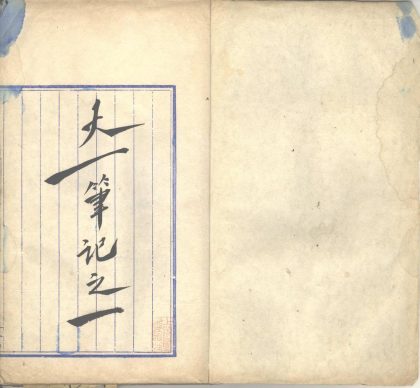 一筆記之一